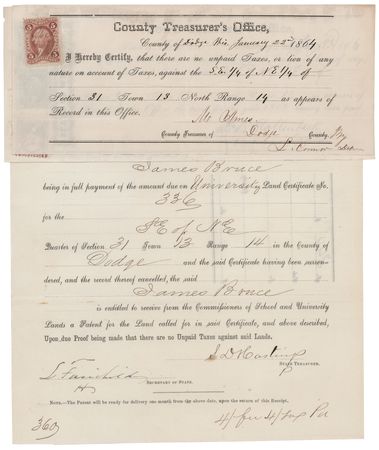 County Treasurer's Office,
County of Dodge Wis. January 22nd 1864
I Hereby Certify, that there are no unpaid Taxes, or lien of any
nature on account of Taxes, against the S.E. 1/4 of N.E. 1/4 of
Section 31 Town 13 North Range 14 as appears of
Record in this Office.
County Treasurer of Dodge County,
James Bruce
being in full payment of the amount due on University Land Certificate No.
336
for the SE of NE
Quarter of Section 31 Town 13 Range 14 in the County of
Dodge and the said Certificate having been surren-
dered, and the record thereof cancelled, the said
James Bruce
is entitled to receive from the Commissioners of School and University
Lands a Patent for the Land called for in said Certificate, and above described,
Upon due Proof being made that there are no Unpaid Taxes against said Lands.
S D Hastings
State Treasurer.
L Fairchild
Secretary of State.
Note.—The Patent will be ready for delivery one month from the above date, upon the return of this Receipt.